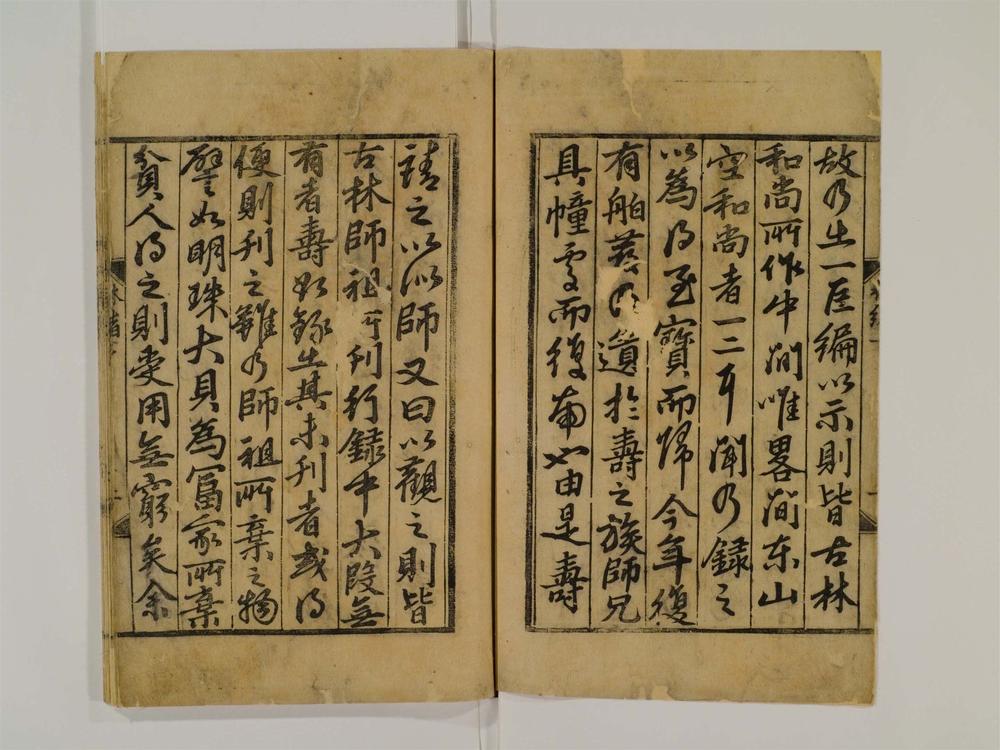 故乃出一巨編以示則皆古林
和尚所作中間唯畧間東山
空和尚者一二耳聞乃錄之
以為得至寶而歸今年復
有舶
遺於壽之族師兄
具幢處而復南也由是壽
請之以似師又曰以觀之則皆
古林師祖所刊行録中大段無
有者壽如錄出其未刊者或得
便則刊之雖乃師祖所棄之物
譬如明珠大貝為冨家所棄
貧人得之則受用無窮矣余